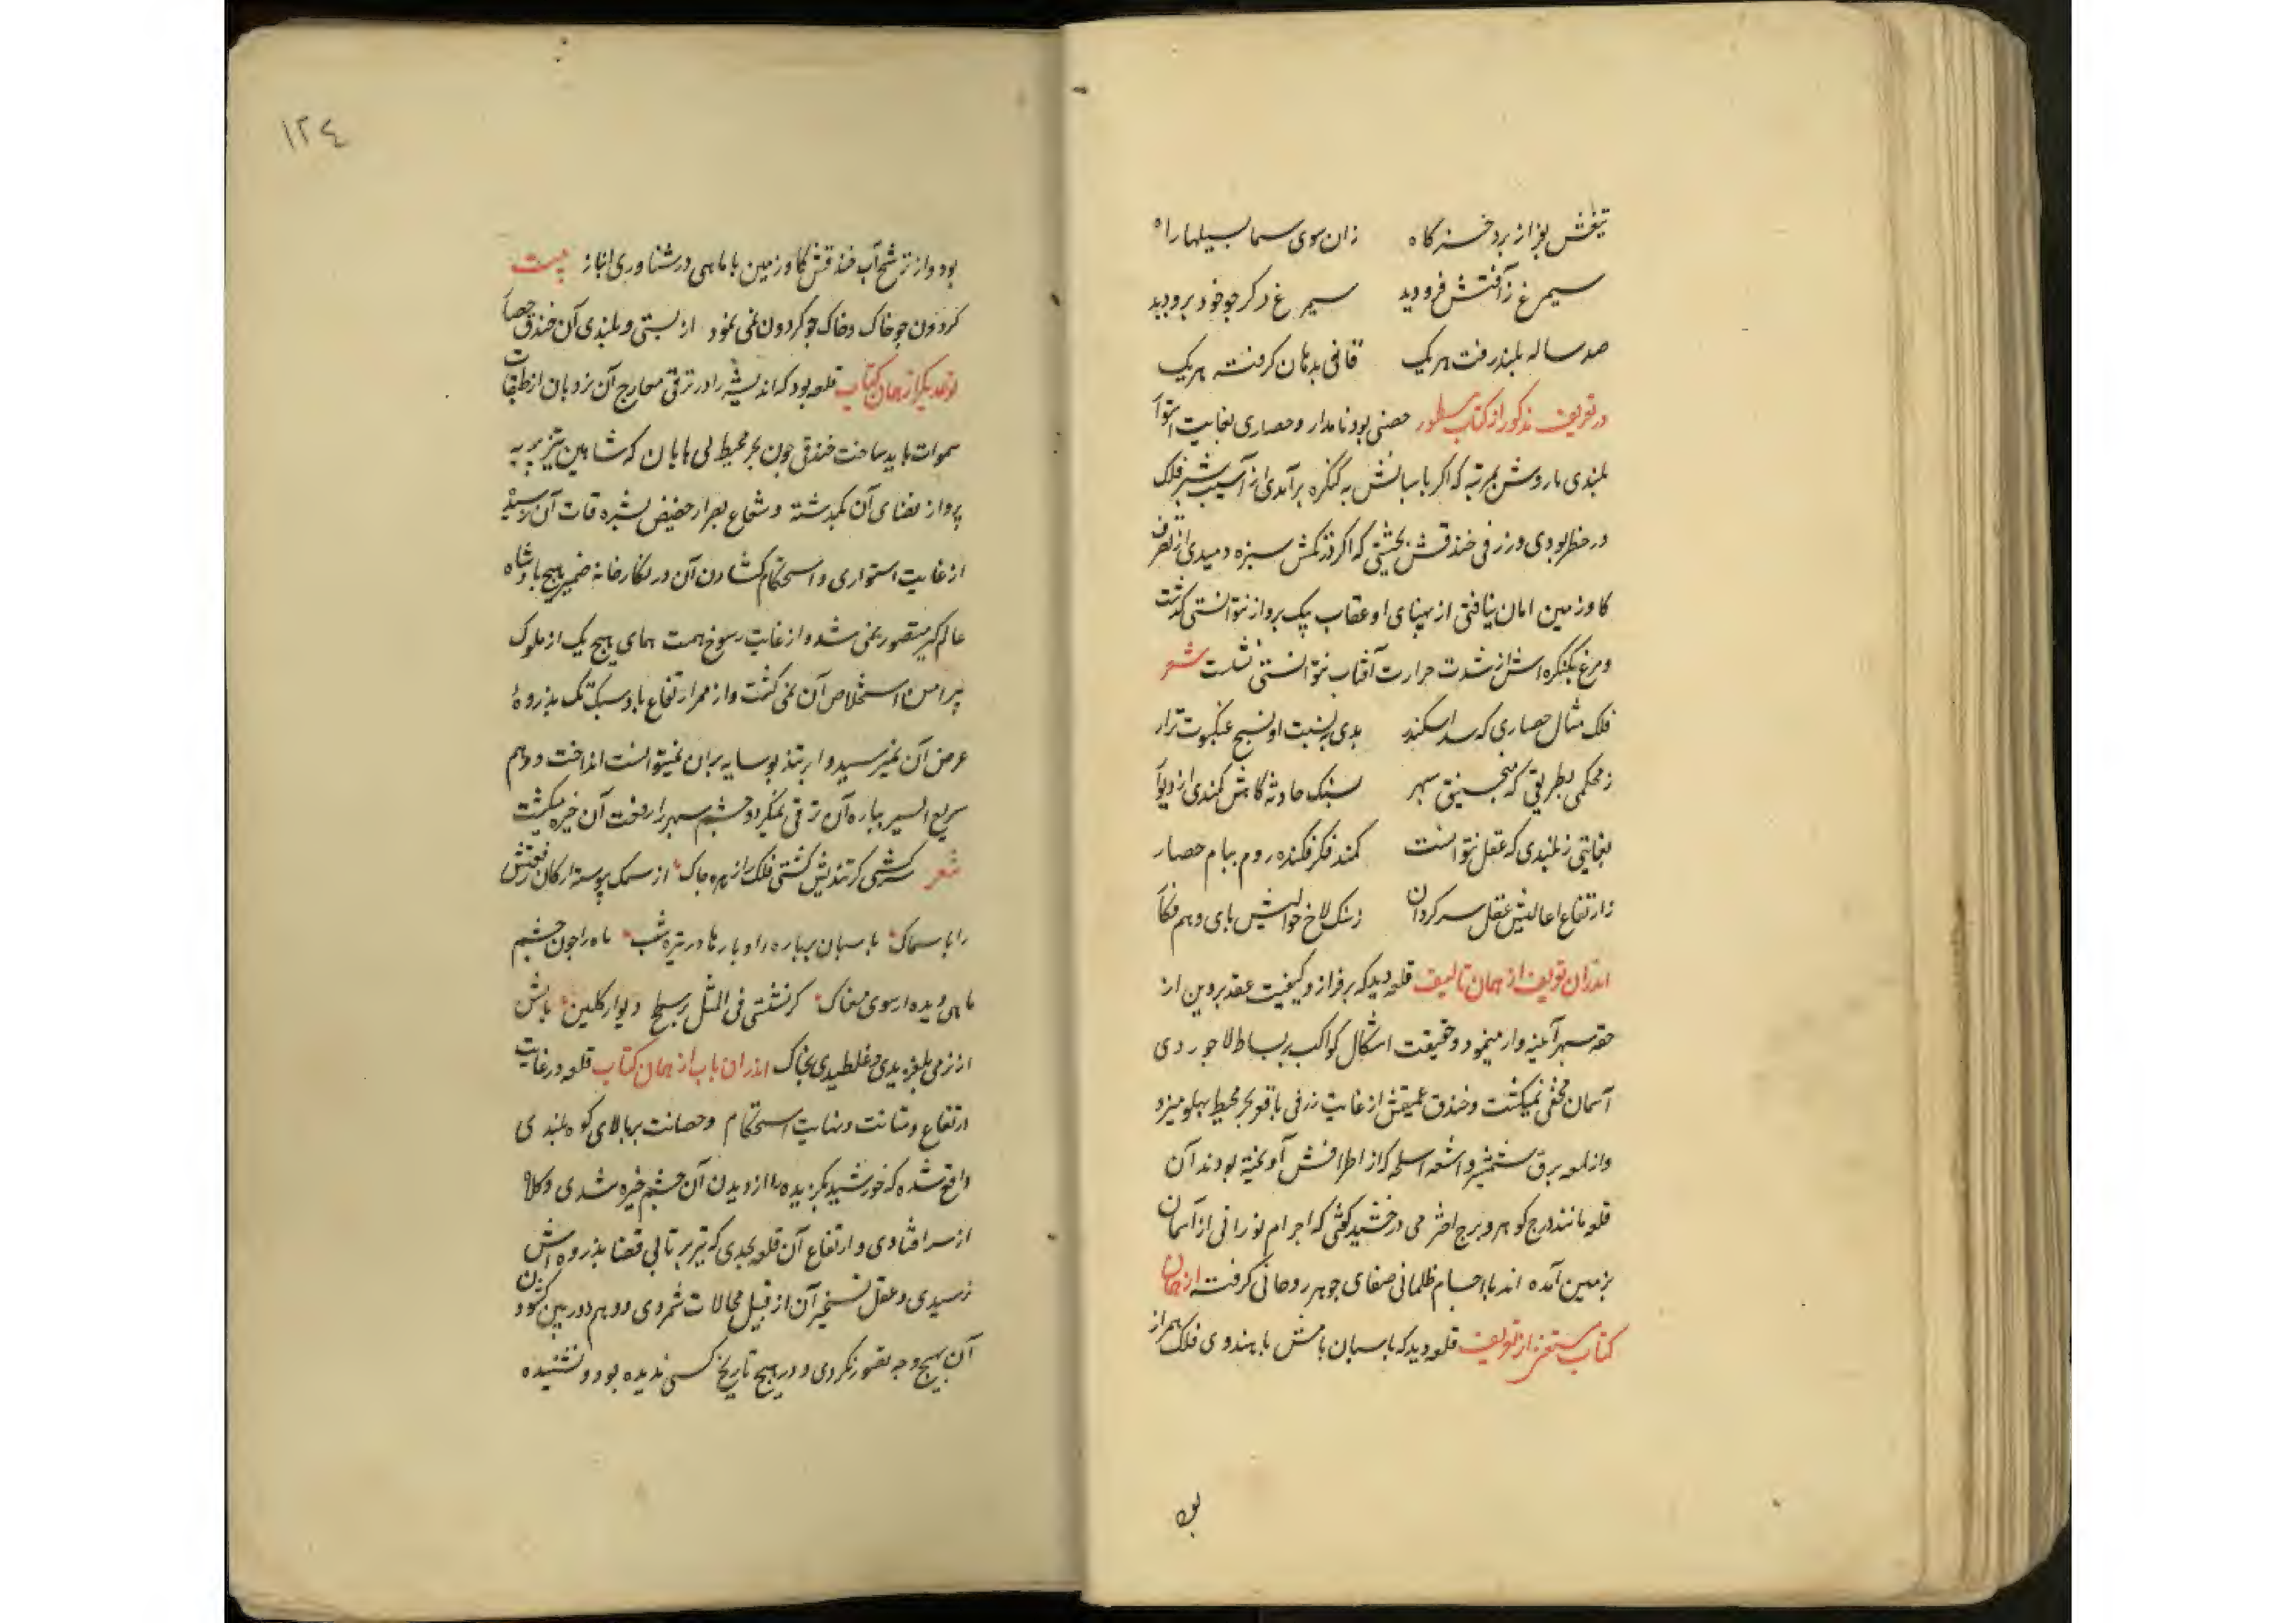 تیغش بفراز برد خسرگاه زان سوی سما سبیلها راه
سیمرغ ز آفتش فرو دید سیمرغ در کر جو خود برو دید
صد ساله بلند رفت هر یک قافی بدهان گرفته هر یک
در تعریف مذکور از کتاب مسطور حصنی بود نامدار و حصاری بغایت استوار
بلندی باروش بمرتبه که اگر پاسبانش به کنگره برآمدی از آسیب شیر فلک
در خطر بودی و ژرفی خندقش بحیثیتی که اگر از تکش سبزه دمیدی از تصرف
کاو زمین امان نیافتی از پهنای او عقاب پیک پرواز نتوانستی گذشت
و مرغ بکنگره اش از شدت حرارت آفتاب نتوانستی نشست شعر
فلک مثال حصاری که سد اسکندر بدی به نسبت او نسج عنکبوت نزار
ز محکمی بطریقی که منجنیق سپهر بسنگ حادثه کاهش نکندی از دیوار
بغایتی ز بلندی که عقل نتوانست کمند فکر فکندن روم ببام حصار
ز ارتفاع اعالیش عقل سرکردان ز سنگ لاخ حوالیش پای وهم فکار
اندران تعریف از همان تالیف قلعه دید که بر فراز و کیفیت عقد پروین از
حقه سپهر آینه وار مینمود و حقیقت اشکال کواکب بر بساط لاجوردی
آسمان مخفی نمیگشت و خندق عمیقش از غایت ژرفی با قعر بحر محیط پهلو میزد
و از لمعه برق شمشیر و اشعه اسلحه که از اطرافش آویخته بودند آن
قلعه مانند درج کوهر و برج اختر می درخشید گفتی که اجرام نورانی از آسمان
بزمین آمده اند یا اجسام ظلمانی صفای جوهر روحانی گرفته از همان
کتاب مستغنی از تعریف قلعه دید که پاسبان بامش با هندوی فلک همراز
بود
۱۲٤
بود و از ترشح آب خندقش کاو زمین با ماهی در شناوری انباز بیت
کردون چو خاک و خاک چو کردون نمی نمود از پستی و بلندی آن خندق حصار
نوعدیگر از همان کتاب قلعه بود که اندیشه را در ترقی معارج آن نردبان از طبقات
سموات باید ساخت خندقی چون بحر محیط بی پایان که شاهین تیز پر به
پرواز فضای آن نگذشته و شعاع بصر از حضیض بشره قات آن نرسیده
از غایت استواری و استحکام گشادن آن در نگارخانه ضمیر هیچ پادشاه
عالم گیر متصور نمی شد و از غایت رسوخ همت همای هیچ یک از ملوک
پیرامن استخلاص آن نمی گشت و از ممر ارتفاع باد سبک تک بذروهٔ
عرض آن نمیرسید و ابر تند پو سایه بران نمیتوانست انداخت و وهم
سریع السیر بباره آن ترقی نمیکرد و چشم سپهر از رفعت آن خیره میگشت
شعر سرکشی کز تندیش گشتی فلک را زهره چاک از سمک پیوسته ارکان رفعتش
را با سماک پاسبان بر باره را و بارها در تیره شب ماه را چون چشم
ماهی دیده از سوی مغاک کر نشستی فی المثل بر سطح دیوار گلین پایش
از نرمی بلغزیدی و غلطیدی بخاک اندران باب از همان کتاب قلعه در غایت
ارتفاع و متانت و نهایت استحکام و حصانت بر بالای کوه بلندی
واقع شده که خورشید بگزیده را از دیدن آن چشم خیره شدی و کلاه
از سر افتادی و ارتفاع آن قلعه بحدی که تیر پرتابی قضا بذروه اش
نرسیدی و عقل تسخیر آن از قبیل محالات شمردی و وهم دوربین گشودن
آن بهیچ وجه تصور نکردی و در هیچ تاریخ کسی ندیده بود و نشنیده